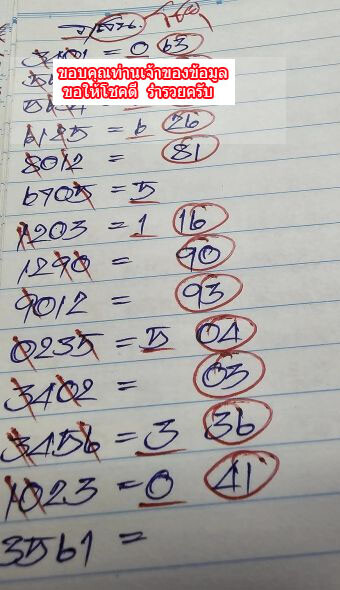 3401 = 0 63
ขอบคุณท่านเจ้าของข้อมูล
ขอให้โชคดี ร่ำรวยครับ
6125 = 6 26
8012 = 81
6705 = 5
1203 = 1 16
1290 = 90
9012 = 93
0235 = 5 04
3402 = 03
3456 = 3 36
1023 = 0 41
3561 =